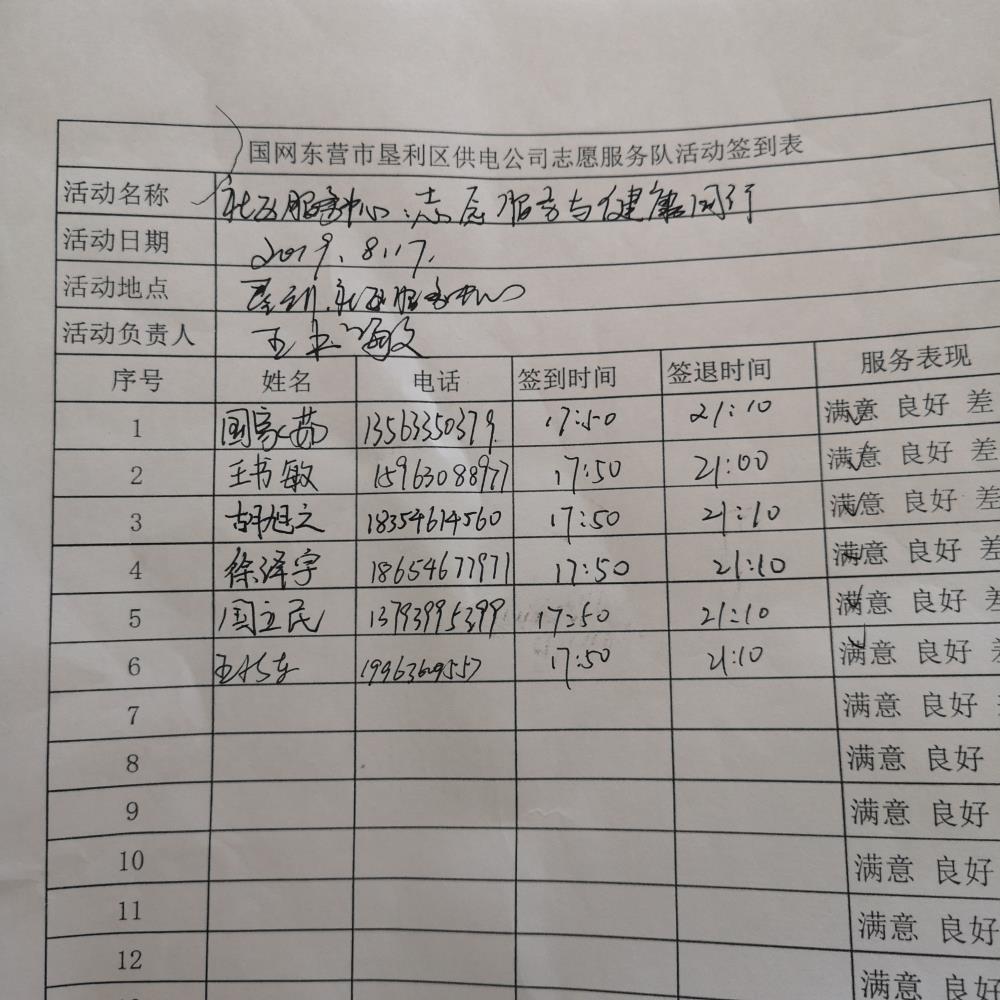 国网东营市垦利区供电公司志愿服务队活动签到表
活动名称 社区服务中心:志愿服务与健康同行
活动日期 2019.8.17.
活动地点 垦利.社区服务中心
活动负责人 王
序号 姓名 电话 签到时间 签退时间 服务表现
1 国家茹 13563350379 17:50 21:10 满意 良好 差
2 王书敏 15963088977 17:50 21:00 满意 良好 差
3 胡旭文 18354614560 17:50 21:10 满意 良好 差
4 徐泽宇 18654677971 17:50 21:10 满意 良好 差
5 国立民 13793995399 17:50 21:10 满意 良好 差
6 17:50 21:10 满意 良好 差
7 满意 良好
8 满意 良好
9 满意 良好
10 满意 良好
11 满意 良好
12 满意 良好